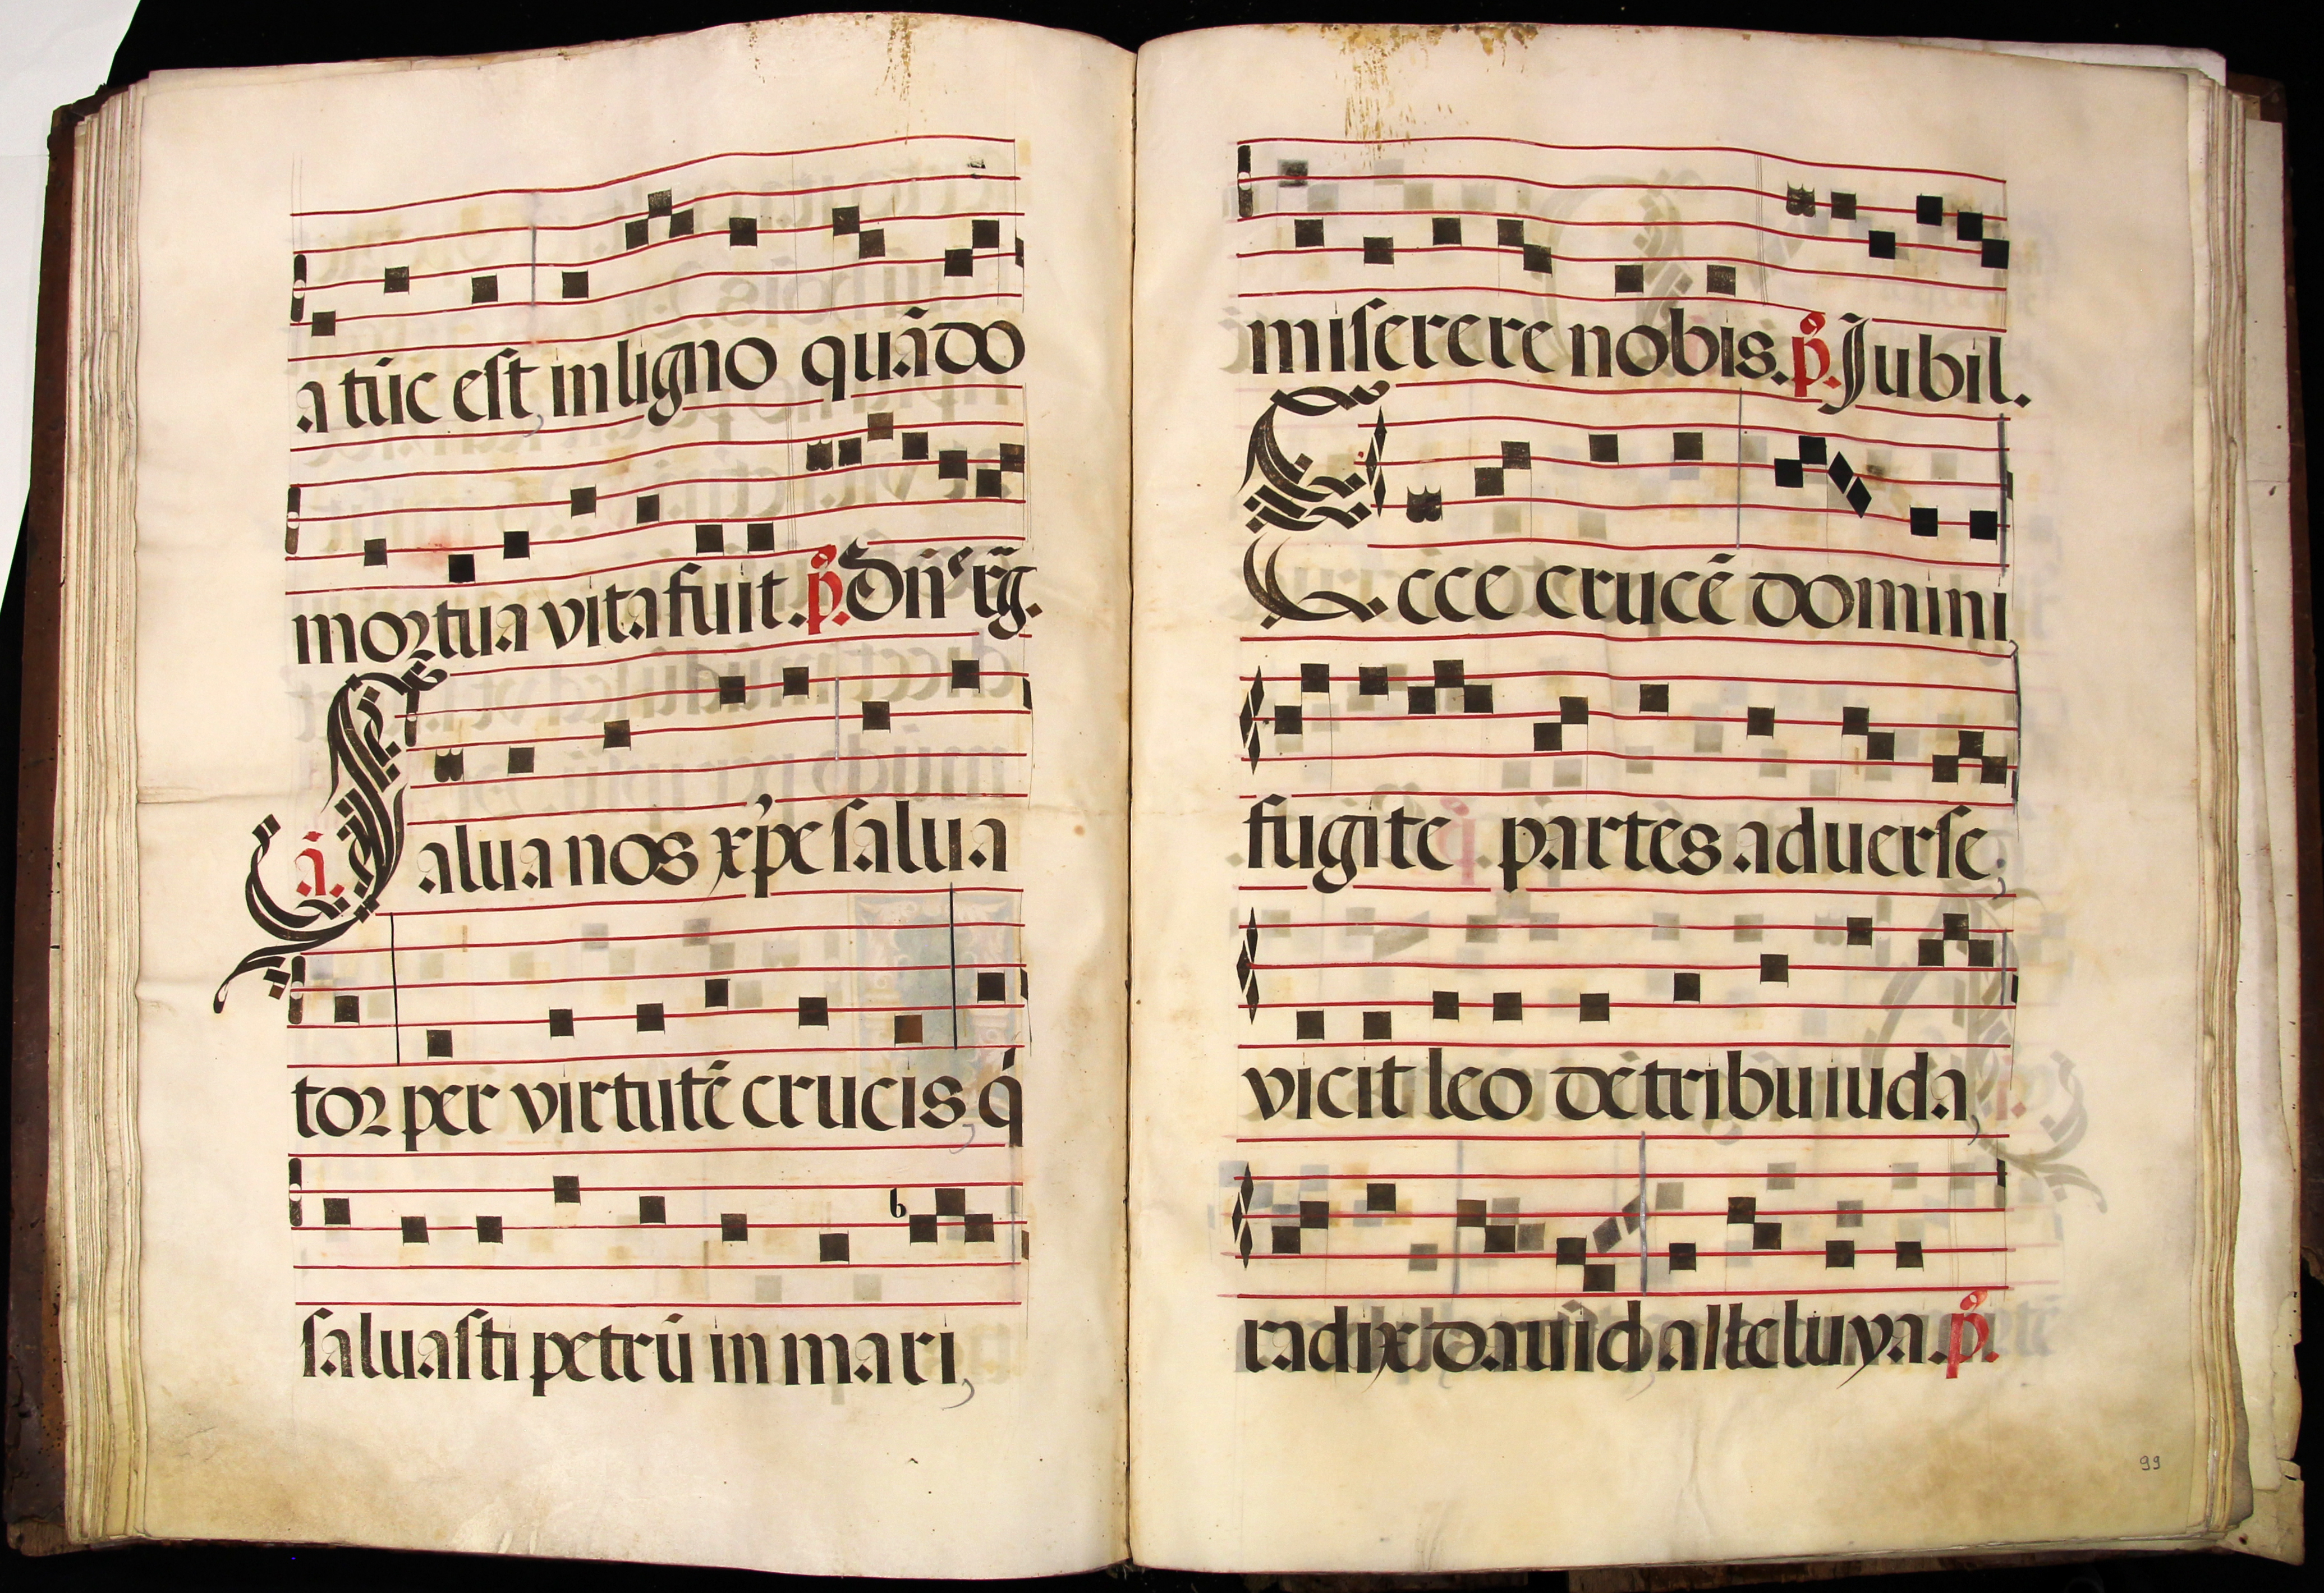 a tūc est in ligno quādo
mortua vita fuit. p̄. Dn̄e rḡ.
a. Salua nos xp̄e salua
tor per virtutē crucis, q́
saluasti petrū in mari,
miserere nobis. p̄. Jubil.
Ecce crucē domini,
fugite partes aduerse,
vicit leo de tribu iuda,
radix dauid alleluya. p̄.
99